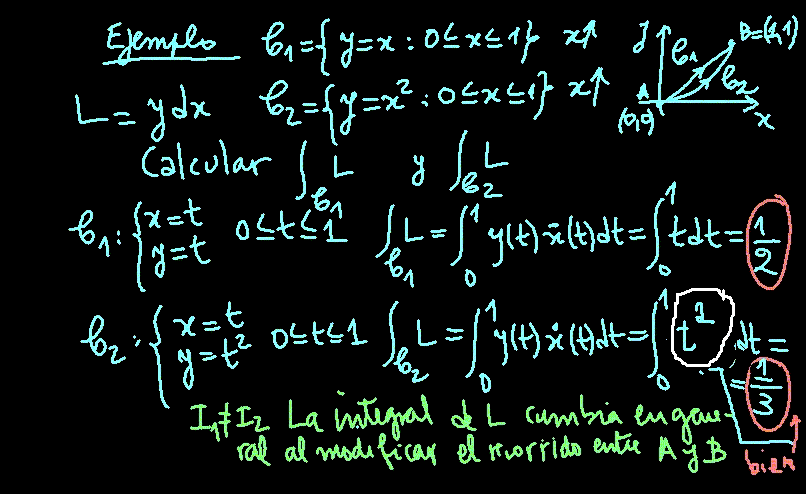 Ejemplo 𝒞₁={y=x : 0≤x≤1} x↑
y B=(1,1)
𝒞₁ 𝒞₂
A (0,0) x
L = ydx 𝒞₂={y=x² : 0≤x≤1} x↑
Calcular ∫_𝒞₁ L y ∫_𝒞₂ L
𝒞₁: {x=t y=t 0≤t≤1 ∫_𝒞₁ L = ∫₀¹ y(t) ẋ(t)dt = ∫₀¹ t dt = 1/2
𝒞₂: {x=t y=t² 0≤t≤1 ∫_𝒞₂ L = ∫₀¹ y(t) ẋ(t)dt = ∫₀¹ t² dt =
= 1/3
I₁≠I₂ La integral de L cambia en gene-
ral al modificar el recorrido entre A y B
bien